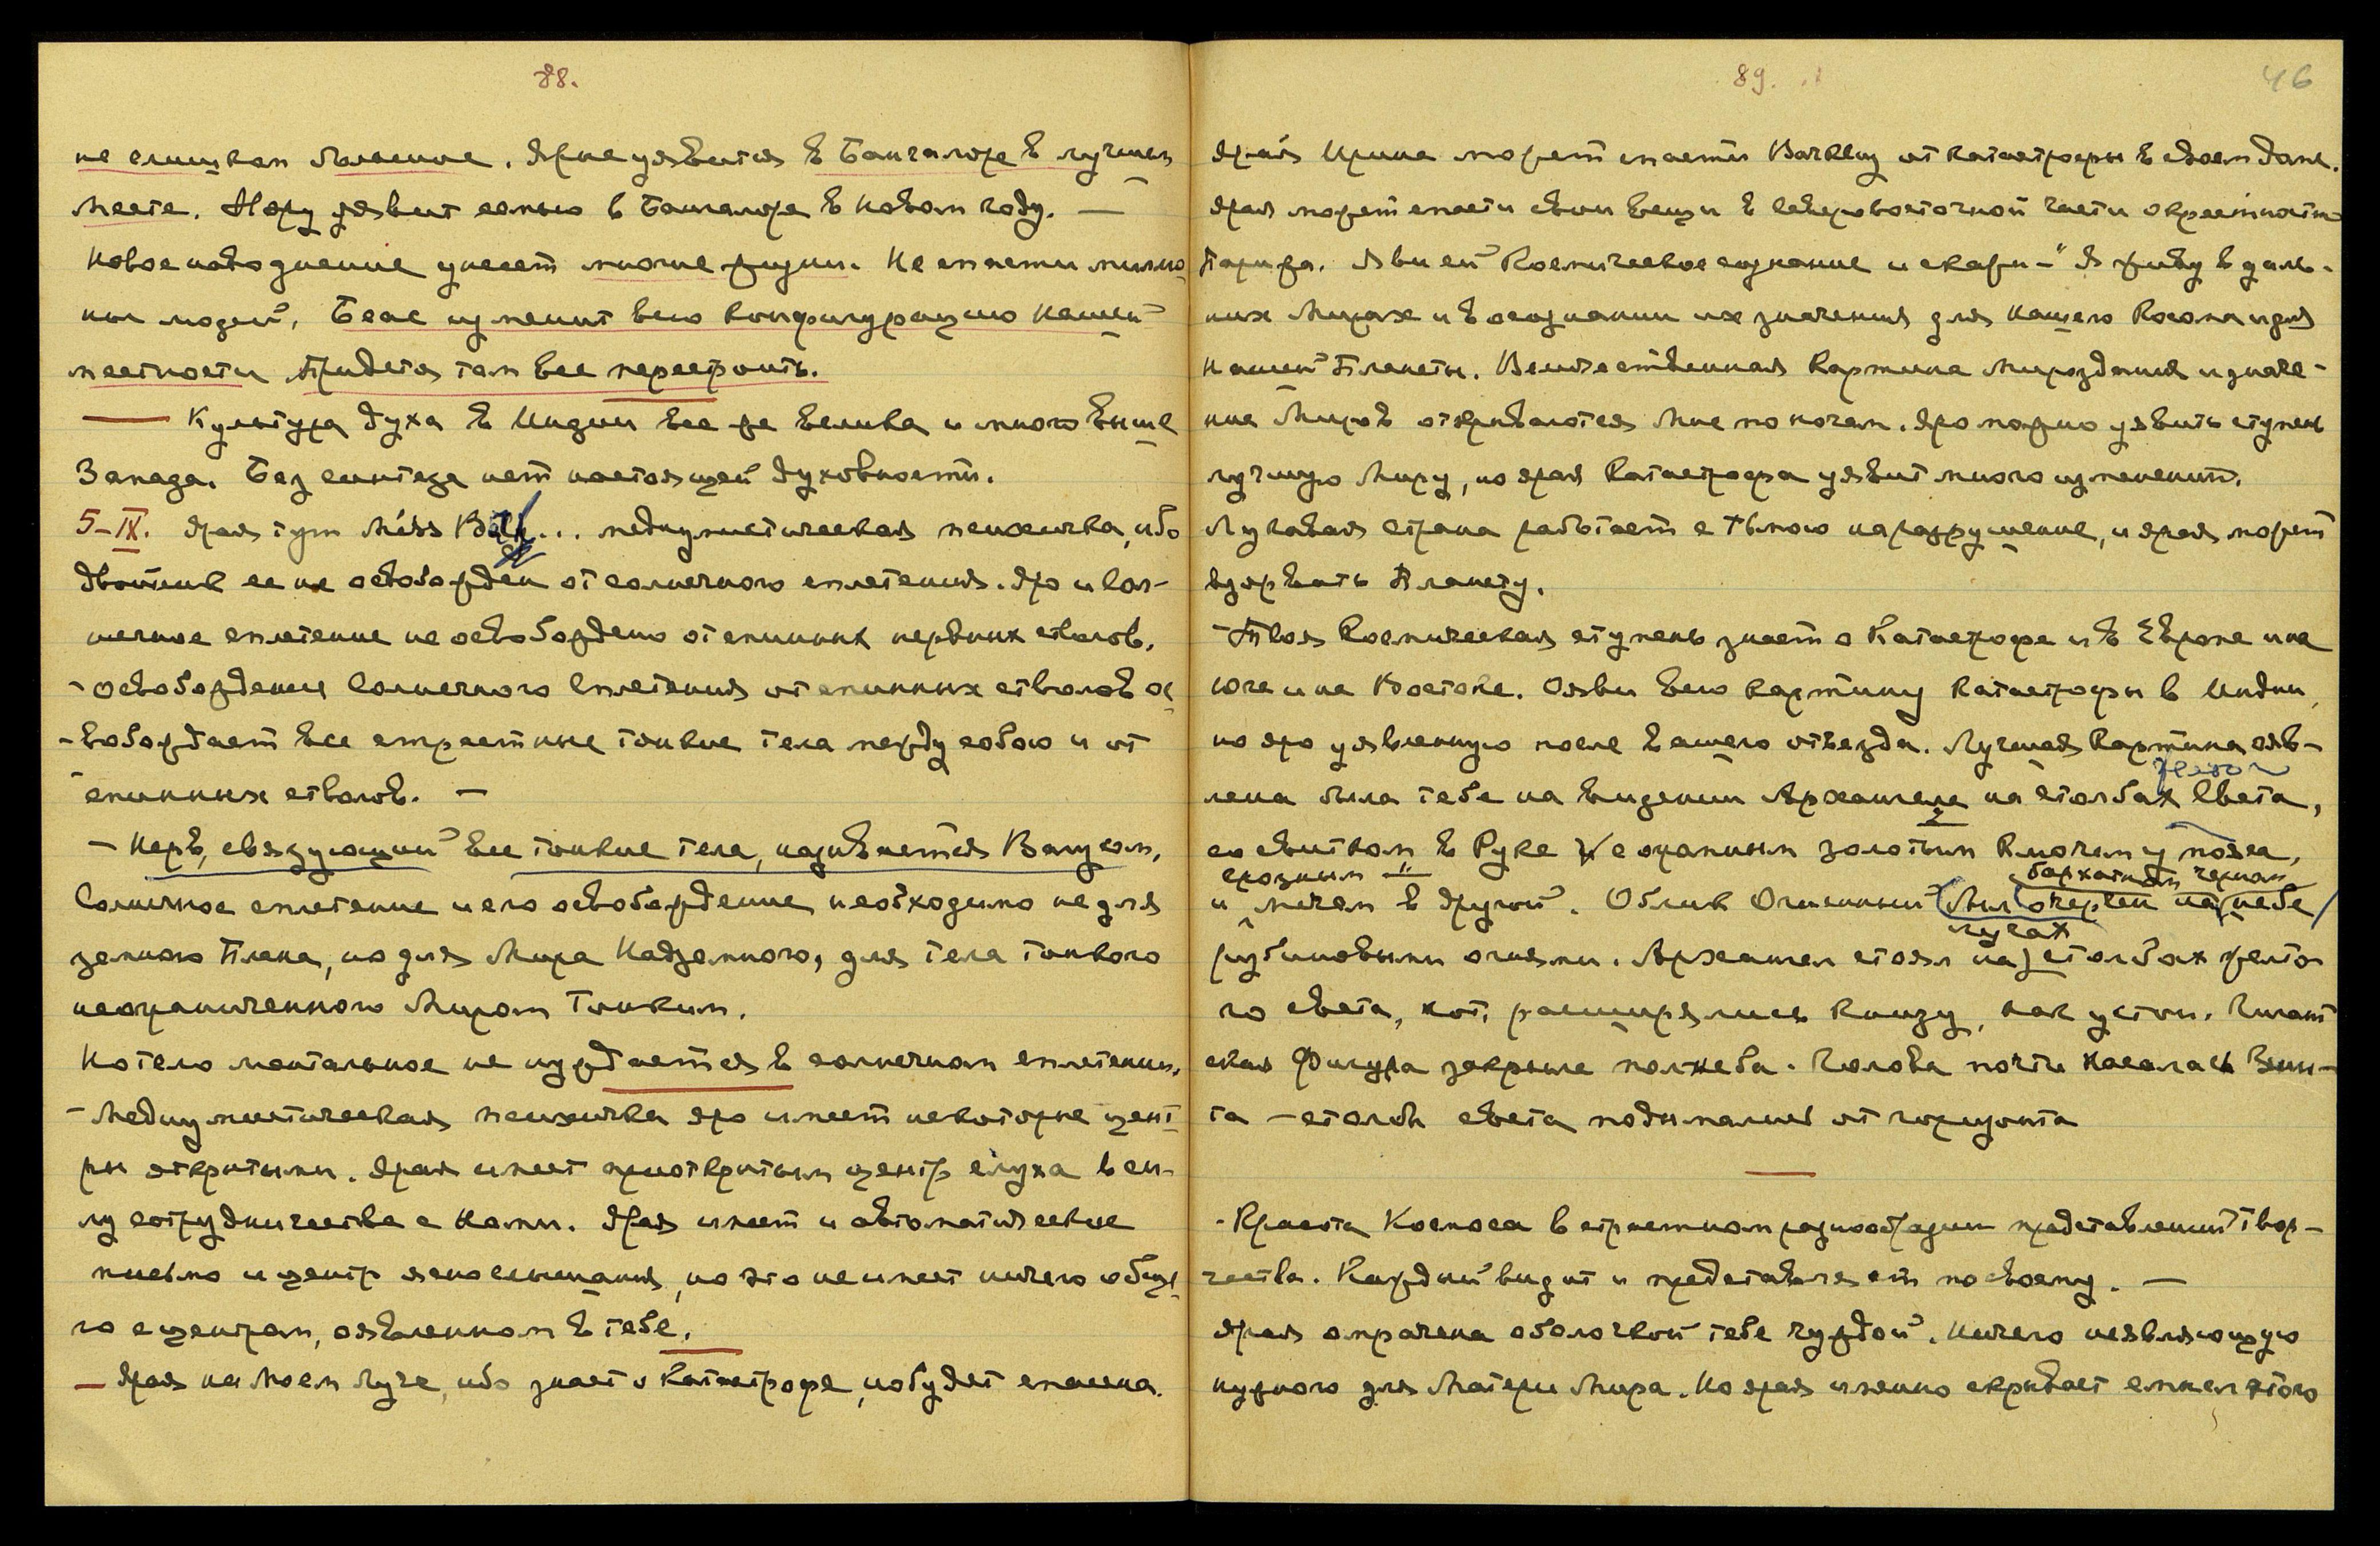 88.
не слишком большое. Ярые уявитесь в Бангалоре в лучшем
месте. Нору уявит семью в Бангалоре в Новом году. —
Новое наводнение унесет многие жизни. Не спасти милио
ны людей. Беас изменит всю конфигурацию нашей
местности Придется там все перестроить.
— Культура духа в Индии все же велика и много выше
Запада. Без синтеза нет настоящей духовности.
5-IX. Ярая тут Miss ... медиумистическая психичка, ибо
двойник ее не освобожден от солнечного сплетения. Яро и Сол-
нечное сплетение не освобождено от спинных нервных стволов.
- Освобождение Солнечного Сплетения от спинных стволов ос
- вобождает все страстные тонкие тела между собою и от
спинных стволов. —
- Нерв, связующий все тонкие тела, называется Вагусом,
Солнечное сплетение и его освобождение необходимо не для
земного Плана, но для Мира Надземного, для тела тонкого
неограниченного Миром Тонким.
Но тело ментальное не нуждается в солнечном сплетении.
- Медиумистическая психичка яро имеет некоторые цент
ры открытыми. Ярая имеет приоткрытым центр слуха в си-
лу сотрудничества с Нами. Ярая имеет и автоматическое
письмо и центр яснослышания, но это не имеет ничего обще
го с центром, оявленном в тебе.
— Ярая на Моем Луче, ибо знает о Катастрофе, но будет спасена.
89.
46
Ярая Ирине может спасти Вачквцу от катастрофы в своем доме.
Ярая может спасти свои вещи в северовосточной части окрестности
Парижа. Яви ей Космическое сознание и скажи - "Я живу в даль-
них Мирах и в осознании их значения для нашего Космоса и для
нашей Планеты. Величественная Картина Мироздания и значе-
ние Миров открываются Мне по ночам. Яро можно уявить ступень
лучшую Миру, но ярая Катастрофа уявит много изменений.
Лукавая страна работает с тьмою на разрушение, и ярая может
взорвать Планету.
- Твоя Космическая ступень знает о Катастрофе и в Европе и на
юге и на Востоке. Ояви всю картину катастрофы в Индии,
но яро уявленную после вашего отъезда. Лучшая Картина ояв-
лена была тебе на видении Архангела на столбах Света,
со свитком в Руке и с огромным золотым Ключем у пояса,
грозным
бархатном черном
и мечем в другой. Облик Огненный был очерчен на небе
лугах
рубиновыми огнями. Архангел стоял на столбах желто-
го света, кот. расширялись книзу, как устои. Гигант
ская Фигура закрыла полнеба. Голова почти касалась Зени-
та - столбы света подымались от горизонта
- Красота Космоса в страстном разнообразии представлений Твор-
чества. Каждый видит и представляет по своему. —
Ярая омрачена оболочкой тебе чуждой. Ничего неявляющую
нужного для Матери Мира. Но ярая именно скрывает смысл этого